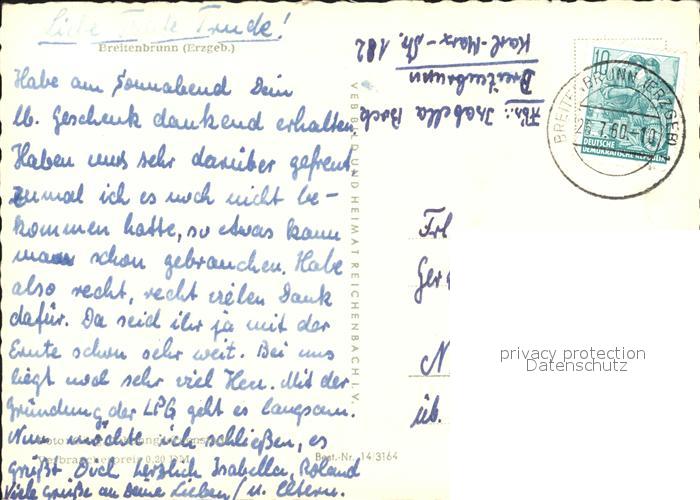 Liebe Tante Trude!
Breitenbrunn (Erzgeb.)
Habe am Sonnabend Dein
lb. Geschenk dankend erhalten
Haben uns sehr darüber gefreut
zumal ich es noch nicht be-
kommen hatte, so etwas kann
man schon gebrauchen. Habe
also recht, recht vielen Dank
dafür. Da seid ihr ja mit der
Ernte schon sehr weit. Bei uns
liegt noch sehr viel Heu. Mit der
Gründung der LPG geht es langsam.
Nun möchte ich schließen, es
grüßt Dich herzlich Isabella, Roland
Viele Grüße an Deine Lieben / u. Eltern.
Verbraucherpreis 0,20 DM
Best.-Nr. 14/3164
VEB BILD UND HEIMAT REICHENBACH I. V.
Abs.: Isabella Bock
Breitenbrunn
Karl-Marx-Str. 182
10
DEUTSCHE
DEMOKRATISCHE REPUBLIK
BREITENBRUNN (ERZGEB)
7.60.-10
Frl
Ger
N
üb.
privacy protection
Datenschutz